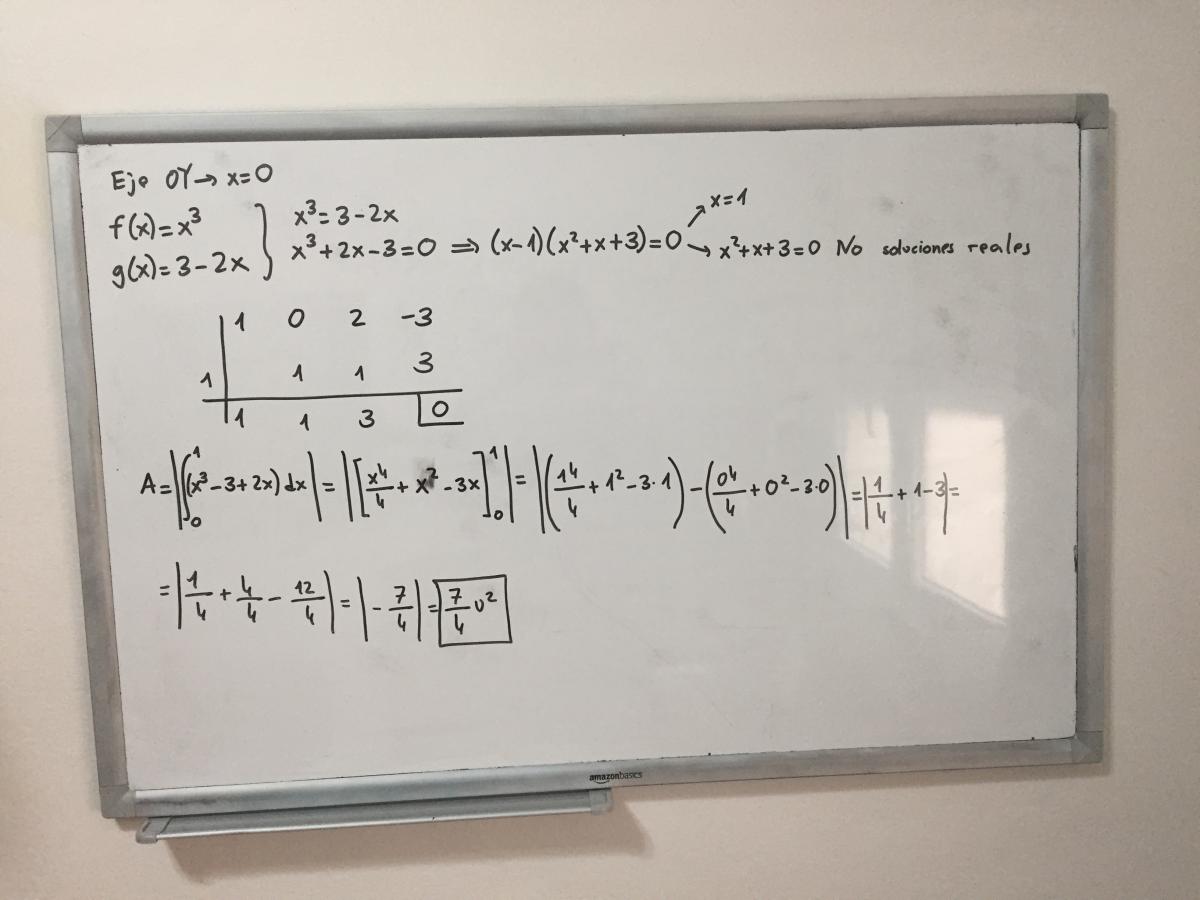 Eje OY → x=0
f(x)=x³
g(x)=3-2x
x³=3-2x
x³+2x-3=0 ⇒ (x-1)(x²+x+3)=0
x=1
x²+x+3=0 No soluciones reales
1 0 2 -3
1 1 1 3
1 1 3 0
A=|∫₀¹(x³-3+2x)dx|=|[x⁴/4+x²-3x]₀¹|=|(1⁴/4+1²-3·1)-(0⁴/4+0²-3·0)|=|1/4+1-3|=
=|1/4+4/4-12/4|=|-7/4|=7/4 u²
amazonbasics